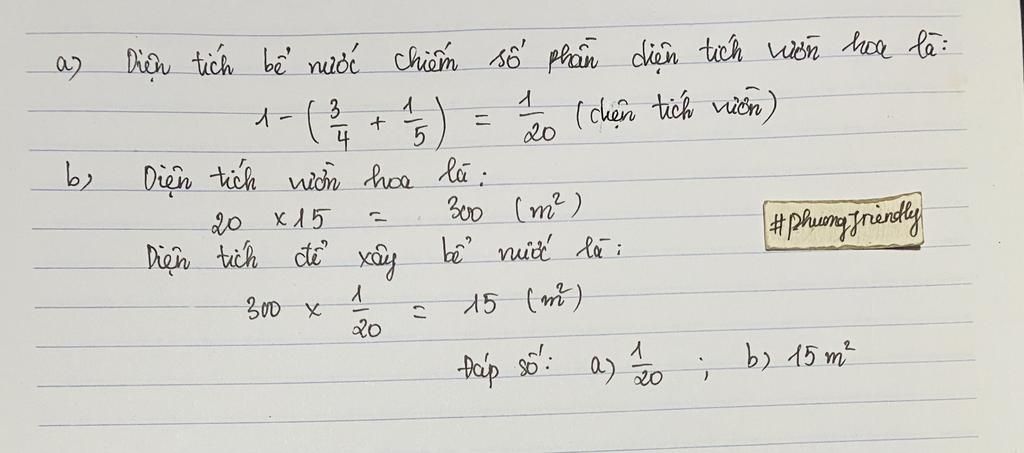 a) Diện tích bể nước chiếm số phần diện tích vườn hoa là:
1 - (3/4 + 1/5) = 1/20 (diện tích vườn)
b) Diện tích vườn hoa là:
20 × 15 = 300 (m²)
#phuongfriendly
Diện tích để xây bể nước là:
300 × 1/20 = 15 (m²)
Đáp số: a) 1/20 ; b) 15 m²